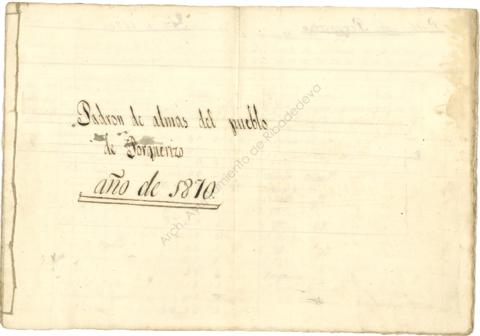 Padron de almas del pueblo
de Porquerizo
año de 1870.
Arch. Ayuntamiento de Ribadedeva